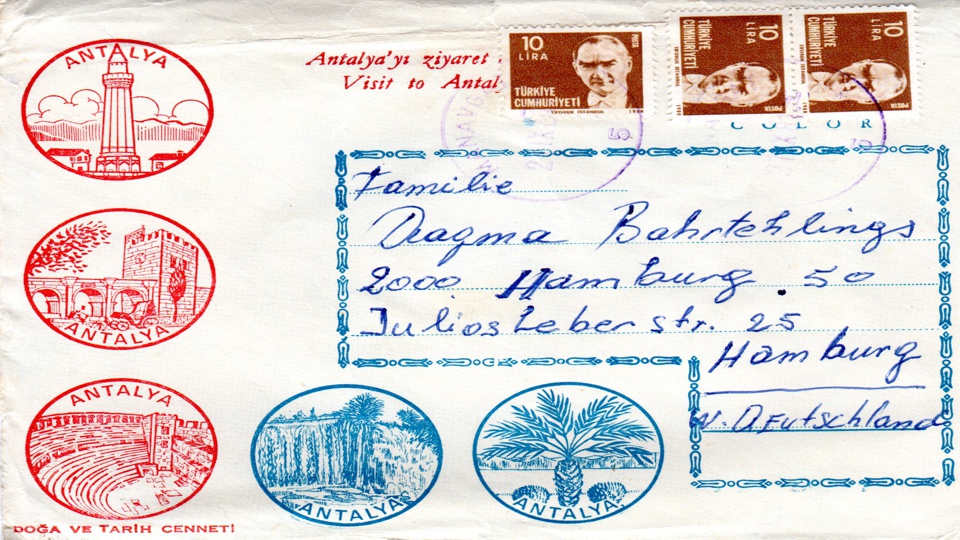 ANTALYA
Antalya'yı ziyaret
Visit to Antal
10
LİRA
POSTA
TÜRKİYE
CUMHURİYETİ
10
LİRA
POSTA
TÜRKİYE
CUMHURİYETİ
10
LİRA
POSTA
TÜRKİYE
CUMHURİYETİ
COLOR
Familie
Dagma Bahrtehlings
2000 Hamburg 50
Julios Leber str. 25
Hamburg
W. DEutschland
ANTALYA
ANTALYA
ANTALYA
ANTALYA
DOĞA VE TARİH CENNETİ